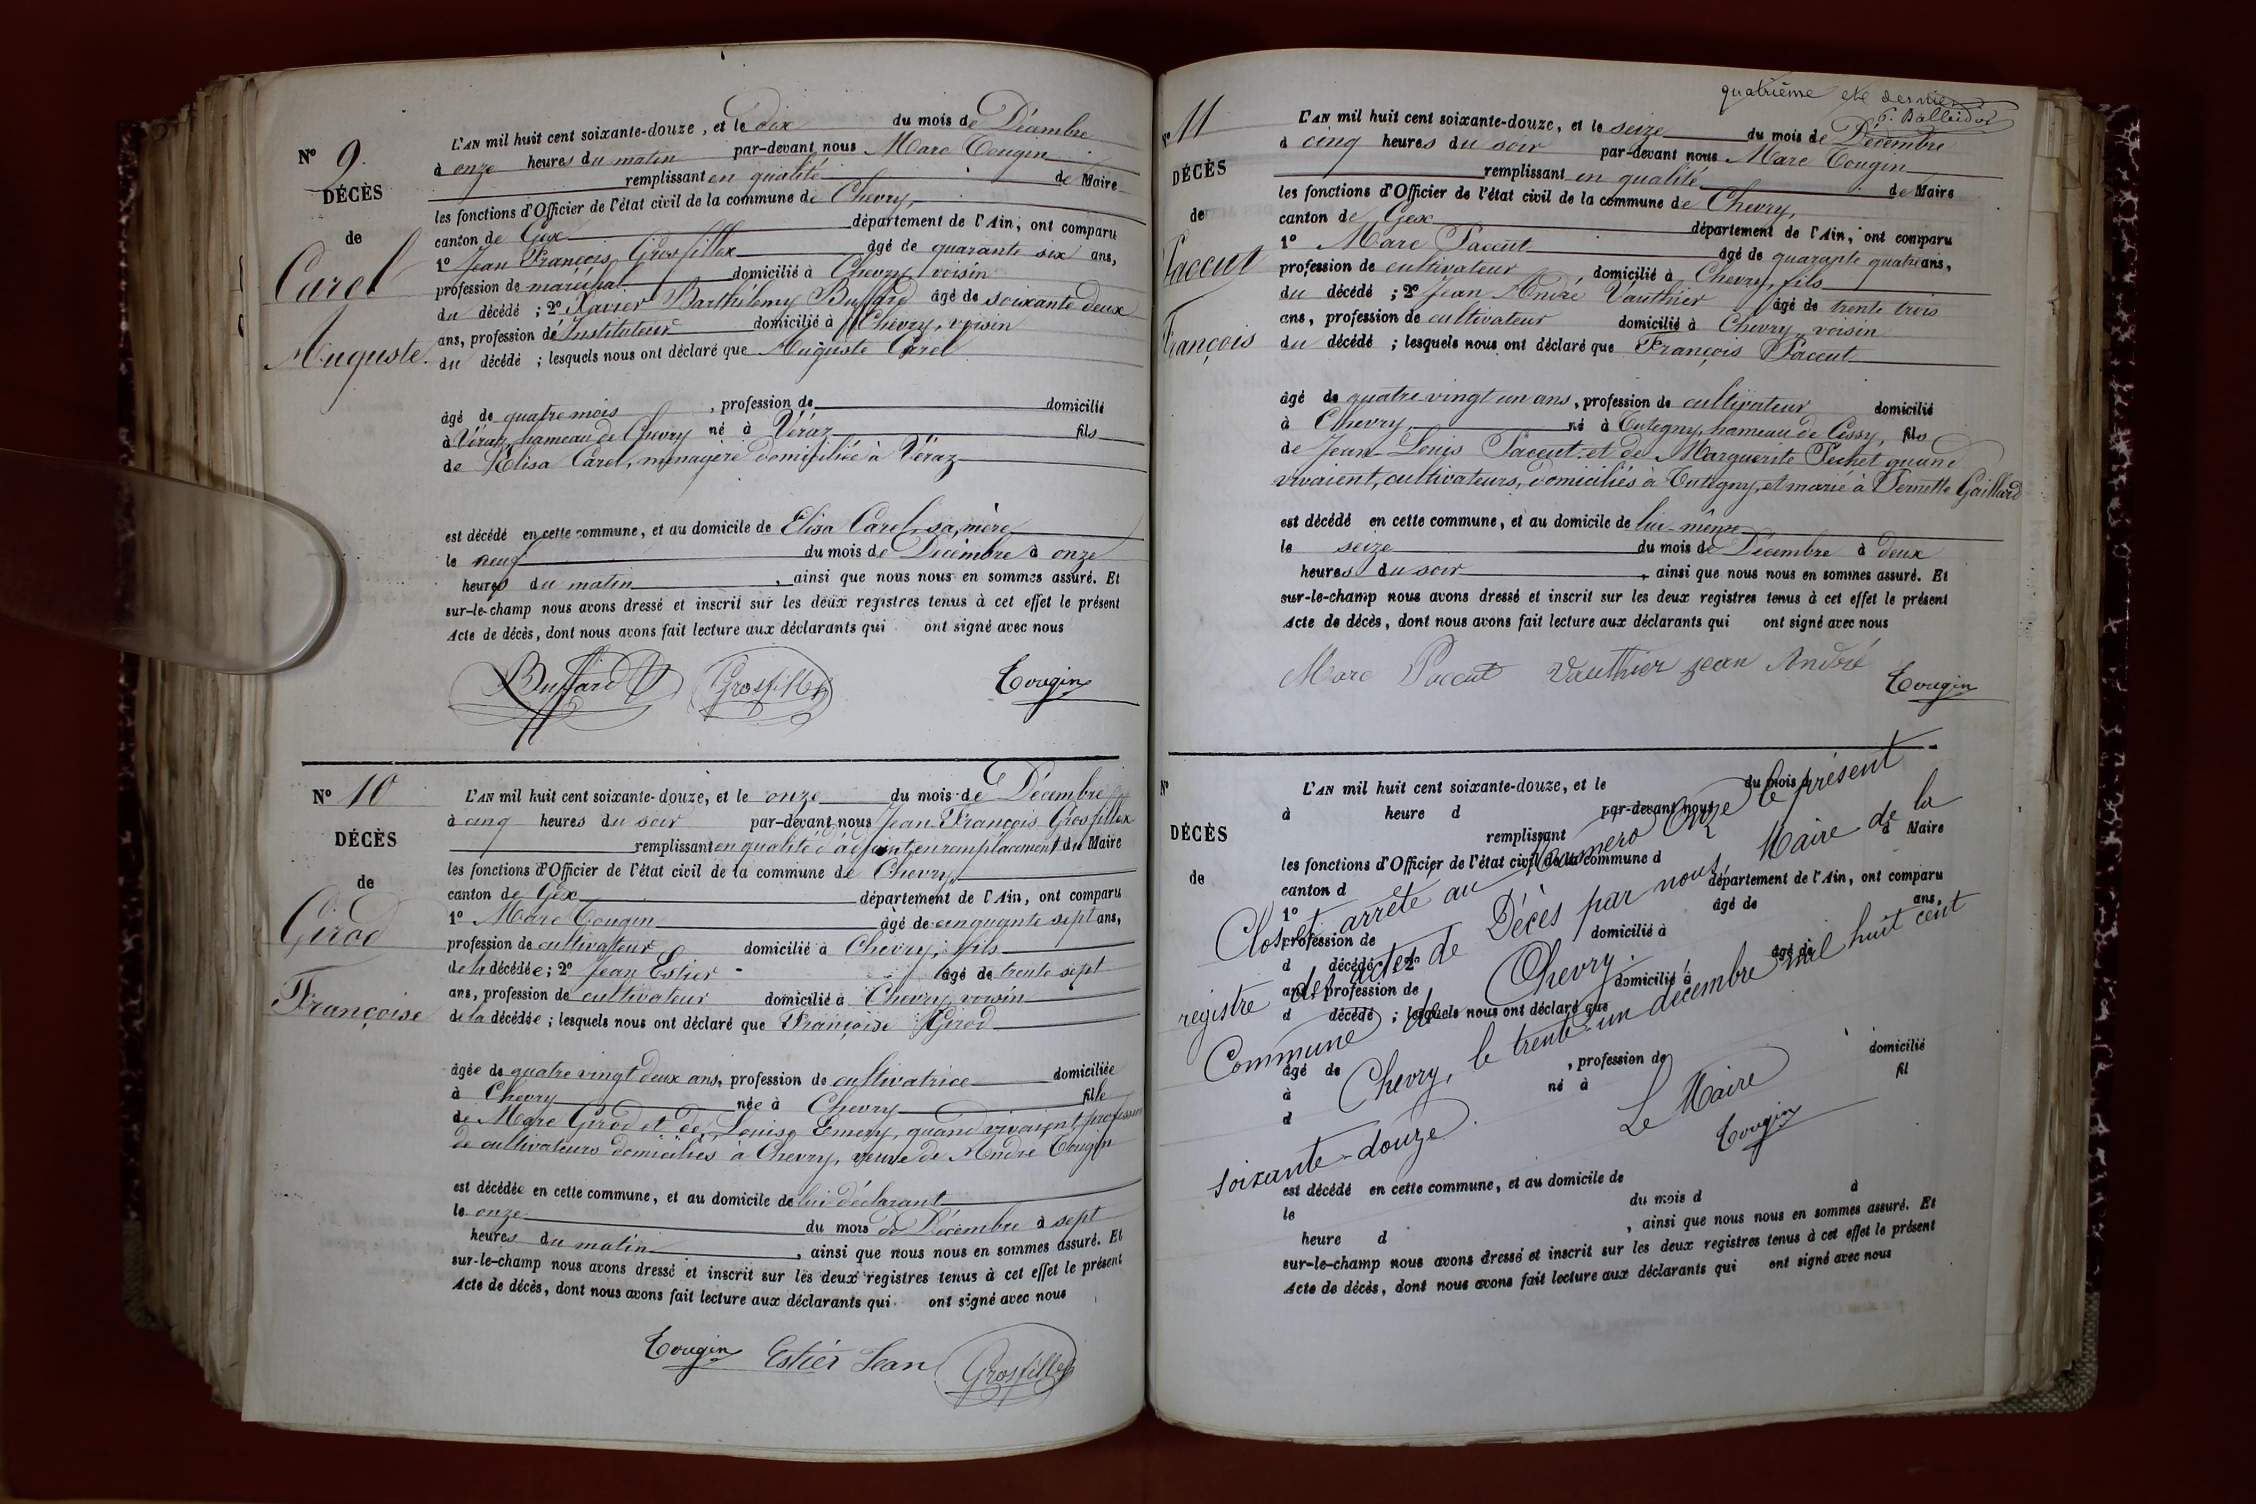 N° 9.
DÉCÈS
de
Carel
Auguste.
L'AN mil huit cent soixante-douze, et le dix du mois de Décembre
à onze heures du matin par-devant nous Marc Tougin
remplissant en qualité de Maire
les fonctions d'Officier de l'état civil de la commune de Chevry,
canton de Gex département de l'Ain, ont comparu
1° Jean François Grosfillex âgé de quarante six ans,
profession de maréchal domicilié à Chevry, voisin
du décédé ; 2° Xavier Barthélemy Buffard âgé de soixante deux
ans, profession de Instituteur domicilié à Chevry, voisin
du décédé ; lesquels nous ont déclaré que Auguste Carel
âgé de quatre mois, profession de domicilié
à Véraz, hameau de Chevry né à Véraz fils
de Elisa Carel, ménagère domiciliée à Véraz
est décédé en cette commune, et au domicile de Elisa Carel, sa mère
le neuf du mois de Décembre à onze
heures du matin, ainsi que nous nous en sommes assuré. Et
sur-le-champ nous avons dressé et inscrit sur les deux registres tenus à cet effet le présent
Acte de décès, dont nous avons fait lecture aux déclarants qui ont signé avec nous
Buffard Grosfillex Tougin
N° 10
DÉCÈS
de
Girod
Françoise
L'AN mil huit cent soixante-douze, et le onze du mois de Décembre
à cinq heures du soir par-devant nous Jean François Grosfillex
remplissant en qualité d'adjoint, en remplacement du Maire
les fonctions d'Officier de l'état civil de la commune de Chevry,
canton de Gex département de l'Ain, ont comparu
1° Marc Tougin âgé de cinquante sept ans,
profession de cultivateur domicilié à Chevry, fils
de la décédée ; 2° Jean Estier âgé de trente sept
ans, profession de cultivateur domicilié à Chevry, voisin
de la décédée ; lesquels nous ont déclaré que Françoise Girod
âgée de quatre vingt deux ans, profession de cultivatrice domiciliée
à Chevry née à Chevry fille
de Marc Girod et de Louise Emery, quand vivaient, profession
de cultivateurs domiciliés à Chevry, veuve de André Tougin
est décédée en cette commune, et au domicile de lui déclarant
le onze du mois de Décembre à sept
heures du matin, ainsi que nous nous en sommes assuré. Et
sur-le-champ nous avons dressé et inscrit sur les deux registres tenus à cet effet le présent
Acte de décès, dont nous avons fait lecture aux déclarants qui ont signé avec nous
Tougin Estier Jean Grosfillex
quatrième et dernier
N° 11
DÉCÈS
de
Paccut
François
L'AN mil huit cent soixante-douze, et le seize du mois de Décembre
à cinq heures du soir par-devant nous Marc Tougin
remplissant en qualité de Maire
les fonctions d'Officier de l'état civil de la commune de Chevry,
canton de Gex département de l'Ain, ont comparu
1° Marc Paccut âgé de quarante quatre ans,
profession de cultivateur, domicilié à Chevry, fils
du décédé ; 2° Jean André Vauthier âgé de trente trois
ans, profession de cultivateur domicilié à Chevry, voisin
du décédé ; lesquels nous ont déclaré que François Paccut
âgé de quatre vingt un ans, profession de cultivateur domicilié
à Chevry, né à Tutegny, hameau de Cessy, fils
de Jean-Louis Paccut et de Marguerite Pechet quand
vivaient, cultivateurs, domiciliés à Tutegny, et marié à Pernette Gaillard
est décédé en cette commune, et au domicile de lui-même
le seize du mois de Décembre à deux
heures du soir, ainsi que nous nous en sommes assuré. Et
sur-le-champ nous avons dressé et inscrit sur les deux registres tenus à cet effet le présent
Acte de décès, dont nous avons fait lecture aux déclarants qui ont signé avec nous
Marc Paccut Vauthier jean André Tougin
N°
DÉCÈS
de
L'AN mil huit cent soixante-douze, et le du mois d
à heure d par-devant nous
remplissant d Maire
les fonctions d'Officier de l'état civil de la commune d
canton d département de l'Ain, ont comparu
1° âgé de ans,
profession de domicilié à
d décédé ; 2° âgé de
ans, profession de domicilié à
d décédé ; lesquels nous ont déclaré que
âgé de , profession de domicilié
à né à fil
d
Clos et arrêté au Numéro Onze le présent
registre des actes de Décès par nous, Maire de la
Commune de Chevry.
Chevry, le trente-un décembre mil huit cent
soixante-douze.
Le Maire
Tougin
est décédé en cette commune, et au domicile de
le du mois d à
heure d , ainsi que nous nous en sommes assuré. Et
sur-le-champ nous avons dressé et inscrit sur les deux registres tenus à cet effet le présent
Acte de décès, dont nous avons fait lecture aux déclarants qui ont signé avec nous